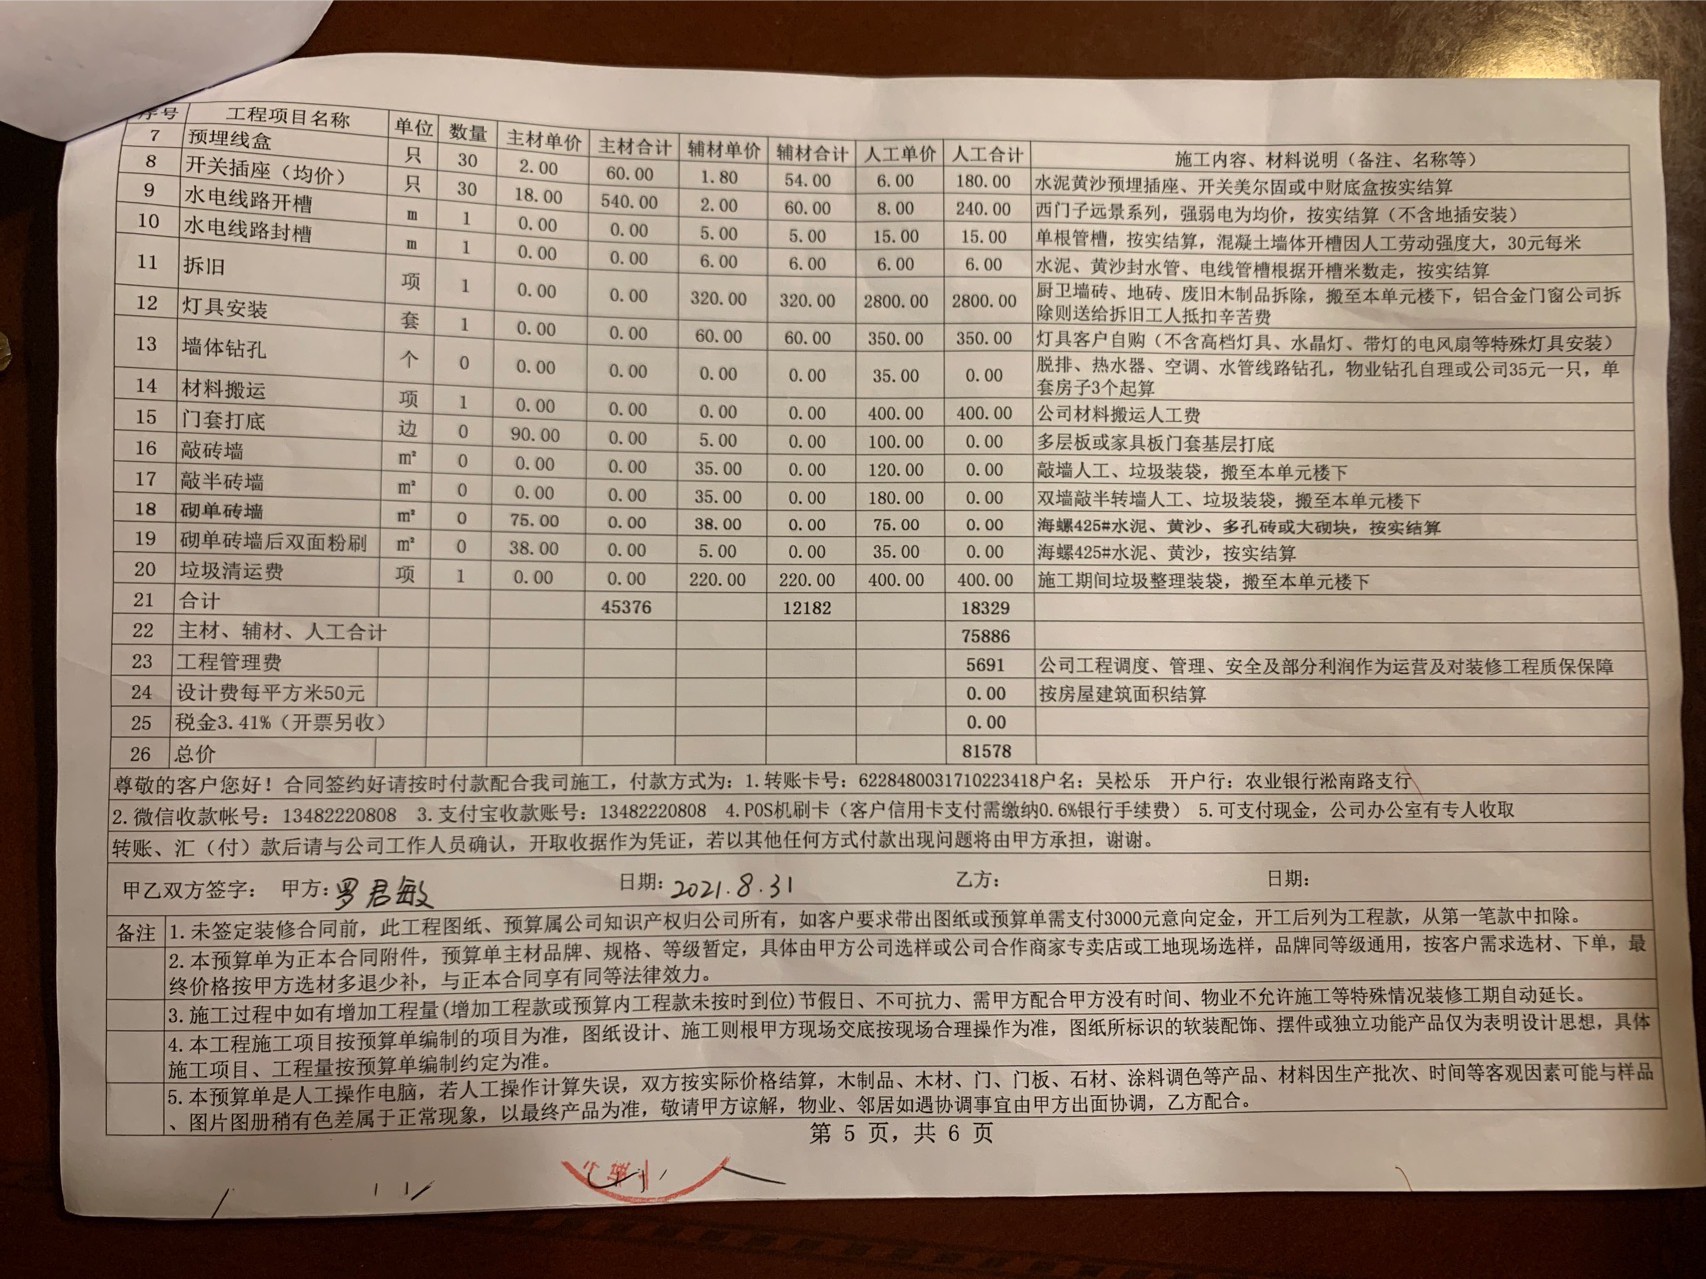 序号 工程项目名称 单位 数量 主材单价 主材合计 辅材单价 辅材合计 人工单价 人工合计 施工内容、材料说明（备注、名称等）
7 预埋线盒 只 30 2.00 60.00 1.80 54.00 6.00 180.00 水泥黄沙预埋插座、开关美尔固或中财底盒按实结算
8 开关插座（均价） 只 30 18.00 540.00 2.00 60.00 8.00 240.00 西门子远景系列，强弱电为均价，按实结算（不含地插安装）
9 水电线路开槽 m 1 0.00 0.00 5.00 5.00 15.00 15.00 单根管槽，按实结算，混凝土墙体开槽因人工劳动强度大，30元每米
10 水电线路封槽 m 1 0.00 0.00 6.00 6.00 6.00 6.00 水泥、黄沙封水管、电线管槽根据开槽米数走，按实结算
11 拆旧 项 1 0.00 0.00 320.00 320.00 2800.00 2800.00 厨卫墙砖、地砖、废旧木制品拆除，搬至本单元楼下，铝合金门窗公司拆
除则送给拆旧工人抵扣辛苦费
12 灯具安装 套 1 0.00 0.00 60.00 60.00 350.00 350.00 灯具客户自购（不含高档灯具、水晶灯、带灯的电风扇等特殊灯具安装）
13 墙体钻孔 个 0 0.00 0.00 0.00 0.00 35.00 0.00 脱排、热水器、空调、水管线路钻孔，物业钻孔自理或公司35元一只，单
套房子3个起算
14 材料搬运 项 1 0.00 0.00 0.00 0.00 400.00 400.00 公司材料搬运人工费
15 门套打底 边 0 90.00 0.00 5.00 0.00 100.00 0.00 多层板或家具板门套基层打底
16 敲砖墙 m² 0 0.00 0.00 35.00 0.00 120.00 0.00 敲墙人工、垃圾装袋，搬至本单元楼下
17 敲半砖墙 m² 0 0.00 0.00 35.00 0.00 180.00 0.00 双墙敲半转墙人工、垃圾装袋，搬至本单元楼下
18 砌单砖墙 m² 0 75.00 0.00 38.00 0.00 75.00 0.00 海螺425#水泥、黄沙、多孔砖或大砌块，按实结算
19 砌单砖墙后双面粉刷 m² 0 38.00 0.00 5.00 0.00 35.00 0.00 海螺425#水泥、黄沙，按实结算
20 垃圾清运费 项 1 0.00 0.00 220.00 220.00 400.00 400.00 施工期间垃圾整理装袋，搬至本单元楼下
21 合计 45376 12182 18329
22 主材、辅材、人工合计 75886
23 工程管理费 5691 公司工程调度、管理、安全及部分利润作为运营及对装修工程质保保障
24 设计费每平方米50元 0.00 按房屋建筑面积结算
25 税金3.41%（开票另收） 0.00
26 总价 81578
尊敬的客户您好！合同签约好请按时付款配合我司施工，付款方式为：1.转账卡号：6228480031710223418户名：吴松乐 开户行：农业银行淞南路支行
2.微信收款帐号：13482220808 3.支付宝收款账号：13482220808 4.POS机刷卡（客户信用卡支付需缴纳0.6%银行手续费） 5.可支付现金，公司办公室有专人收取
转账、汇（付）款后请与公司工作人员确认，开取收据作为凭证，若以其他任何方式付款出现问题将由甲方承担，谢谢。
甲乙双方签字： 甲方：罗君敏 日期：2021.8.31 乙方： 日期：
备注 1.未签定装修合同前，此工程图纸、预算属公司知识产权归公司所有，如客户要求带出图纸或预算单需支付3000元意向定金，开工后列为工程款，从第一笔款中扣除。
2.本预算单为正本合同附件，预算单主材品牌、规格、等级暂定，具体由甲方公司选样或公司合作商家专卖店或工地现场选样，品牌同等级通用，按客户需求选材、下单，最
终价格按甲方选材多退少补，与正本合同享有同等法律效力。
3.施工过程中如有增加工程量(增加工程款或预算内工程款未按时到位)节假日、不可抗力、需甲方配合甲方没有时间、物业不允许施工等特殊情况装修工期自动延长。
4.本工程施工项目按预算单编制的项目为准，图纸设计、施工则根甲方现场交底按现场合理操作为准，图纸所标识的软装配饰、摆件或独立功能产品仅为表明设计思想，具体
施工项目、工程量按预算单编制约定为准。
5.本预算单是人工操作电脑，若人工操作计算失误，双方按实际价格结算，木制品、木材、门、门板、石材、涂料调色等产品、材料因生产批次、时间等客观因素可能与样品
、图片图册稍有色差属于正常现象，以最终产品为准，敬请甲方谅解，物业、邻居如遇协调事宜由甲方出面协调，乙方配合。
第 5 页，共 6 页